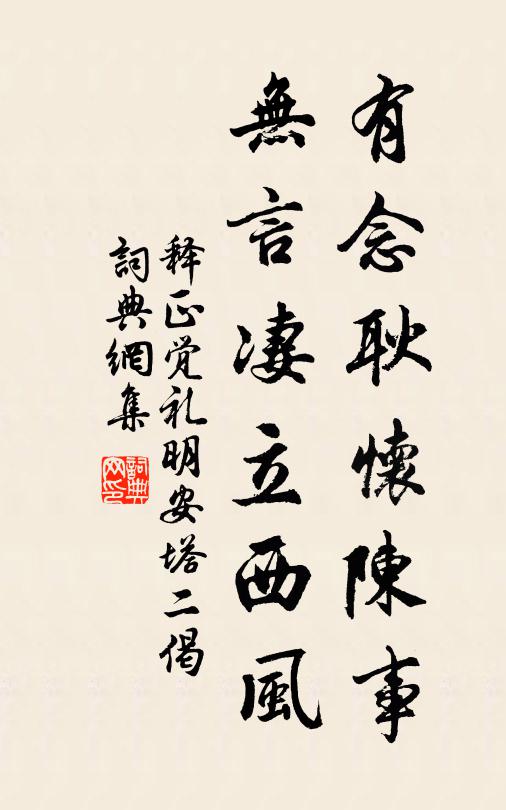 有念耿懷陳事
無言凄立西風
释正觉礼明安塔二偈
詞典網集
詞典网印